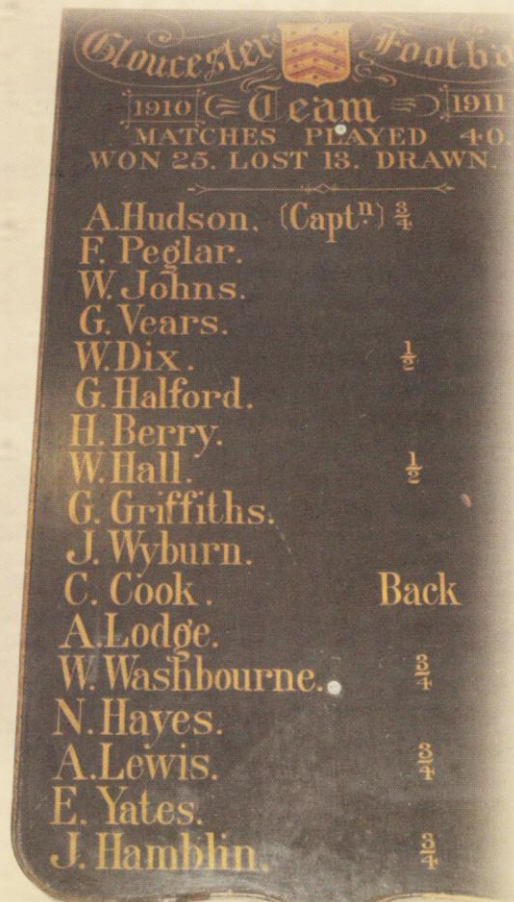 Gloucester Footba
1910 Team 1911
MATCHES PLAYED 40.
WON 25. LOST 13. DRAWN.
A. Hudson. (Captⁿ.) ¾
F. Peglar.
W. Johns.
G. Vears.
W. Dix. ½
G. Halford.
H. Berry.
W. Hall. ½
G. Griffiths.
J. Wyburn.
C. Cook. Back
A. Lodge.
W. Washbourne. ¾
N. Hayes.
A. Lewis. ¾
E. Yates.
J. Hamblin. ¾